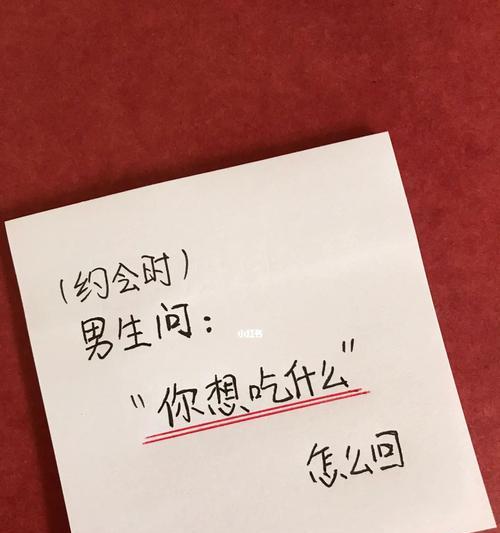 (约会时)
男生问:
小红书
"你想吃什么"
怎么回